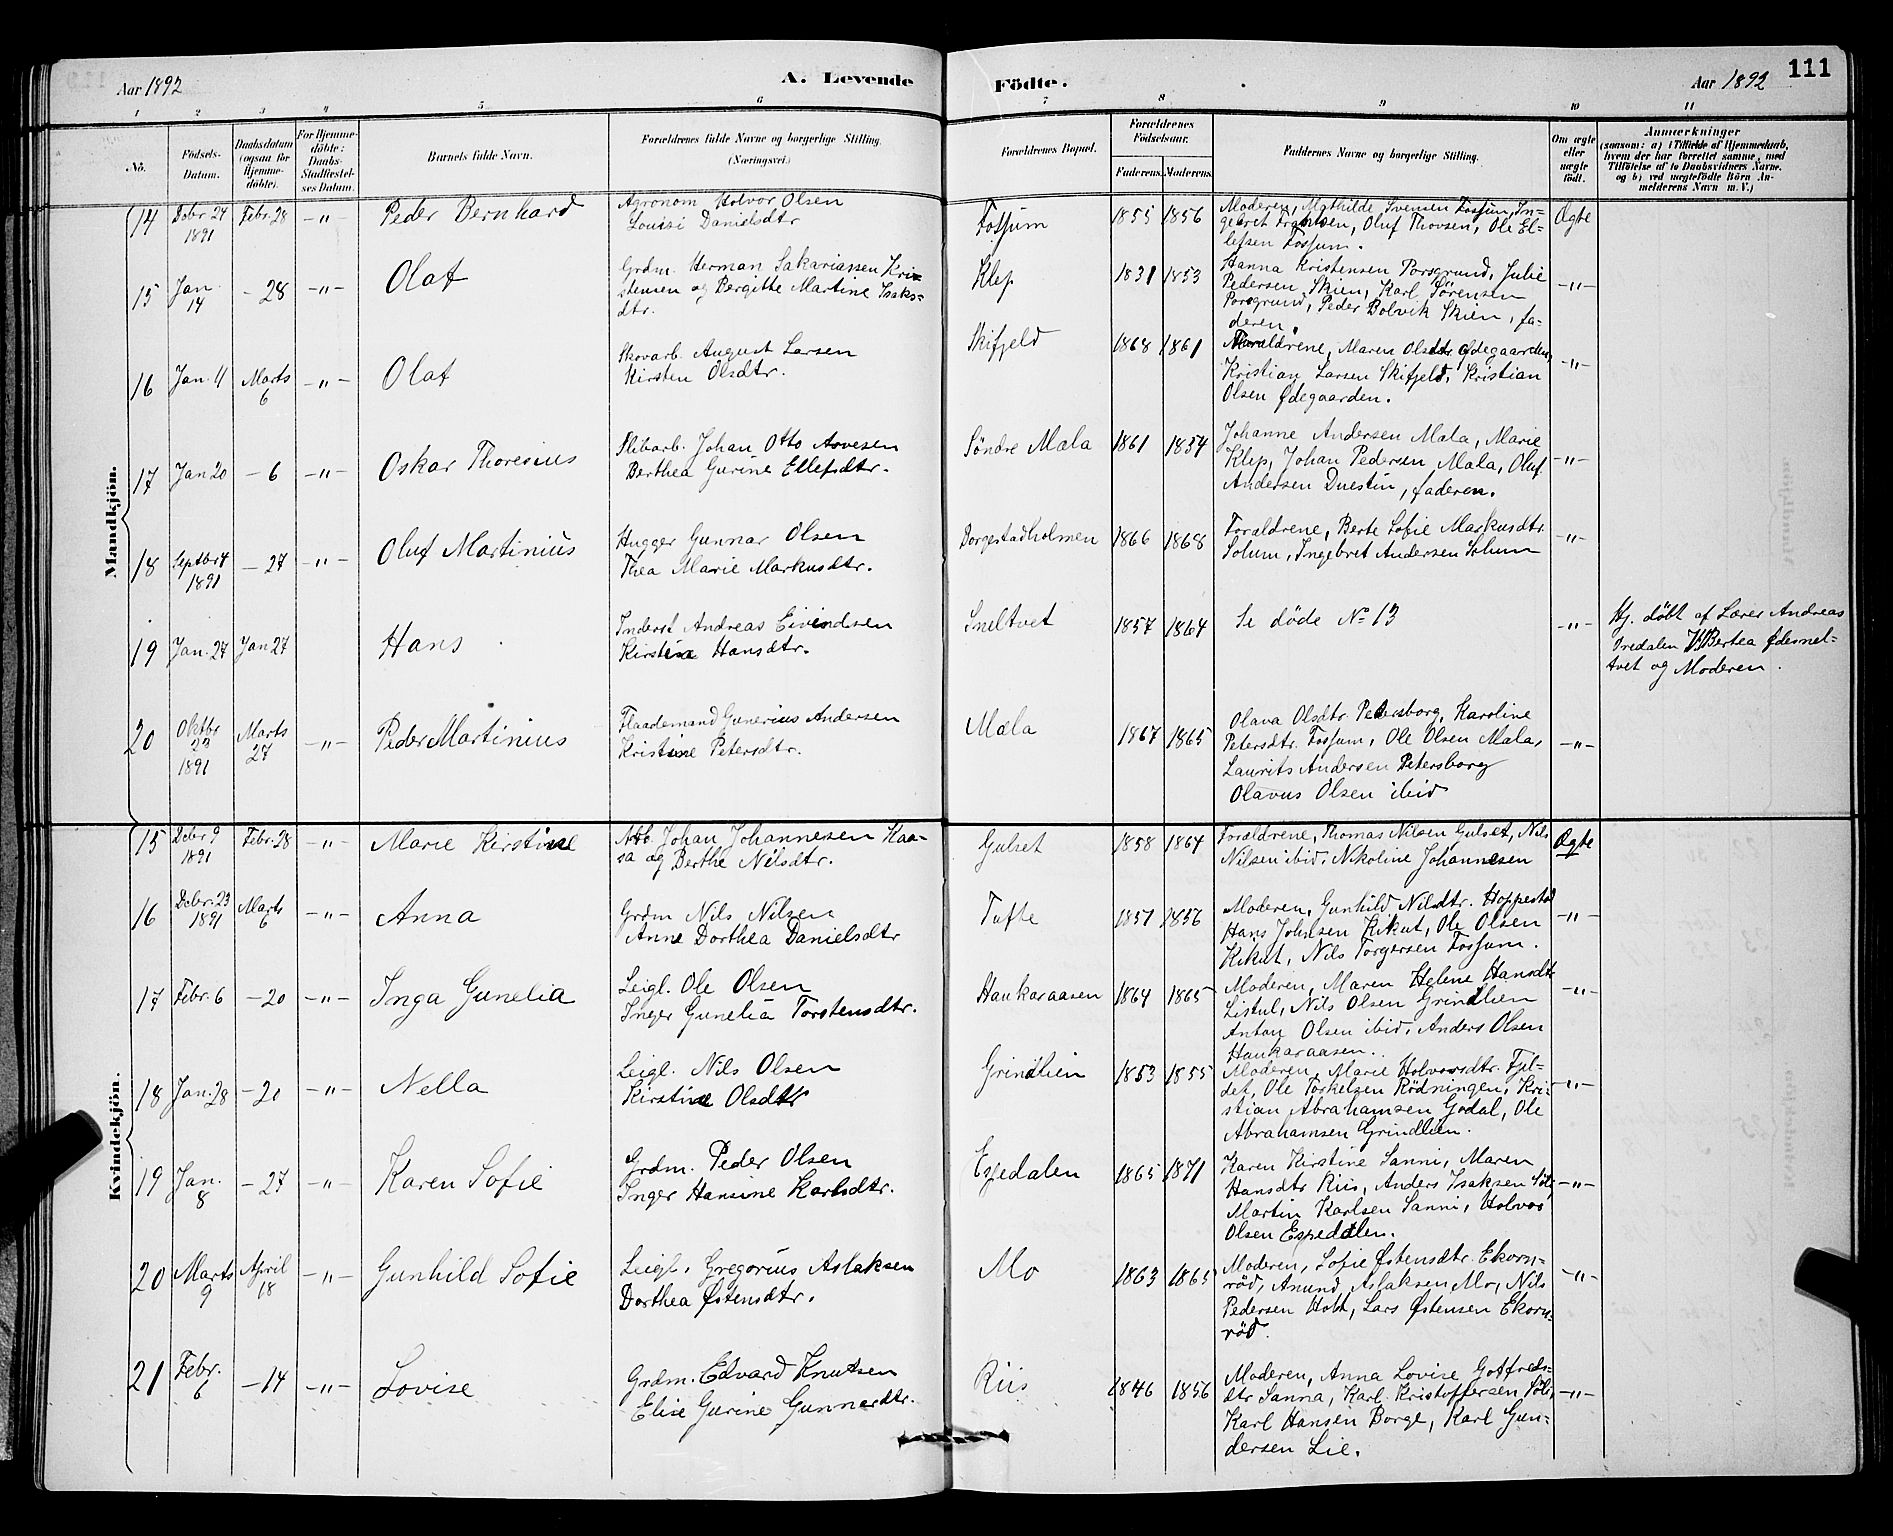 Aar 1892
A. Levende
Födte.
Aar 1892
111
1 2 3 4 5 6 7 8 9 10 11
No.
Födsels-
Datum.
Daabsdatum
(ogsaa for
Hjemme-
döbte).
For Hjemme-
döbte:
Daabs-
Stadfæstel-
ses Datum.
Barnets fulde Navn.
Forældrenes fulde Navne og borgerlige Stilling.
(Næringsvei.)
Forældrenes Bopæl.
Forældrenes
Födselsaar.
Faderens. Moderens.
Faddernes Navne og borgerlige Stilling.
Om ægte
eller
uægte
født.
Anmærkninger
(saasom: a) i Tilfælde af Hjemmedaab,
hvem der har forrettet samme, med
Tilföielse af to Daabsvidners Navne,
og b) ved uægtefödte Börn An-
melderens Navn m. V.)
Mandkjön.
14 Decbr 24 1891 Febr. 28 -"- Peder Bernhard
Agronom Holvor Olsen
Louise Danielsdtr
Fossum 1855 1856
Moderen, Mathilde Svensen Fossum, In-
gebret Frantsen, Oluf Thovsen, Ole El-
lefsen Fossum.
Ægte
15 Jan. 14 - 28 -"- Olaf
Grdm. Herman Sakariassen Kri-
stensen og Bergitte Martine Isaks-
dtr.
Klep 1831 1853
Hanna Kristensen Porsgrund, Julie
Pedersen Skien, Karl Sörensen
Porsgrund, Peder Bolvik Skien, fa-
deren.
-"-
16 Jan. 11 Marts 6 -"- Olaf
Skovarb. August Larsen
Kirsten Olsdtr.
Skifjeld 1868 1861
Foraldrene, Maren Olsdtr Ødegaarden,
Kristian Larsen Skifjeld, Kristian
Olsen Ødegaarden.
-"-
17 Jan 20 - 6 -"- Oskar Thoresius
Slibarb. Johan Otto Aavesen
Berthea Gurine Ellefsdtr.
Söndre Mæla 1861 1854
Johanne Andersen Mæla, Marie
Klep, Johan Pedersen Mæla, Oluf
Andersen Duestin, faderen.
-"-
18 Septbr 4 1891 - 27 -"- Oluf Martinius
Hugger Gunnar Olsen
Thea Marie Markusdtr.
Borgestadholmen 1866 1868
Foraldrene, Berte Sofie Markusdtr
Solum, Ingebret Andersen Solum
-"-
19 Jan. 27 Jan 27 Hans
Inderst Andreas Eivindsen
Kirstine Hansdtr.
Sneltvet 1857 1864
Se döde No 13
-"-
Hj. döbt af Lærer Andreas
Bredalen Bertea Ødesnel-
tvet og Moderen.
20 Oktbr 23 1891 Marts 27 -"- Peder Martinius
Flaademand Gunerius Andersen
Kristine Petersdtr.
Mæla 1867 1865
Olava Olsdtr. Petersborg, Karoline
Petersdtr. Fossum, Ole Olsen Mæla,
Laurits Andersen Petersborg
Olavus Olsen ibid
-"-
Kvindekjön.
15 Decbr 9 1891 Febr. 28 -"- Marie Kirstine
Arb. Johan Johannesen Kaa-
sa og Berthe Nilsdtr.
Gulset 1858 1864
Foraldrene, Thomas Nilsen Gulset, Nils
Nilsen ibid, Nikoline Johannesen
Ægte
16 Decbr. 23 1891 Marts 6 -"- Anna
Grdm Nils Nilsen
Anne Dorthea Danielsdtr
Tufte 1851 1856
Moderen, Gunhild Nilsdtr. Hoppestad
Hans Johnsen Kikut, Ole Olsen
Kikut, Nils Torgersen Fossum.
-"-
17 Febr. 6 - 20 -"- Inga Gunelia
Leigl. Ole Olsen
Inger Gunelia Torstensdtr.
Haukaraasen 1864 1865
Moderen, Maren Helene Hansdtr
Listul, Nils Olsen Grindlien
Anton Olsen ibid, Anders Olsen
Haukaraasen.
-"-
18 Jan. 28 - 20 -"- Nella
Leigl. Nils Olsen
Kirstine Olsdtr
Grindlien 1853 1855
Moderen, Marie Holvorsdtr. Fjel-
det, Ole Torkelsen Rödningen, Kri-
stian Abrahamsen Godal, Ole
Abrahamsen Grindlien.
-"-
19 Jan. 8 - 27 -"- Karen Sofie
Grdm. Peder Olsen
Inger Hansine Karlsdtr.
Espedalen 1865 1871
Karen Kirstine Sanni, Maren
Hansdtr Riis, Anders Isaksen Söli
Martin Karlsen Sanni, Holvor
Olsen Espedalen.
-"-
20 Marts 9 April 18 -"- Gunhild Sofie
Leigl. Gregorius Aslaksen
Dorthea Østensdtr.
Mo 1863 1865
Moderen, Sofie Østensdtr. Ekorn-
röd, Anund Aslaksen Mo, Nils
Pedersen Holt, Lars Østensen Ekorn-
röd.
-"-
21 Febr. 6 - 14 -"- Lovise
Grdm. Edvard Knutsen
Elise Gurine Gunnardtr.
Riis 1846 1856
Moderen, Anna Lovise Gotfreds-
dtr Sanna, Karl Kristoffersen Söli,
Karl Hansen Borge, Karl Gun-
dersen Lie.
-"-